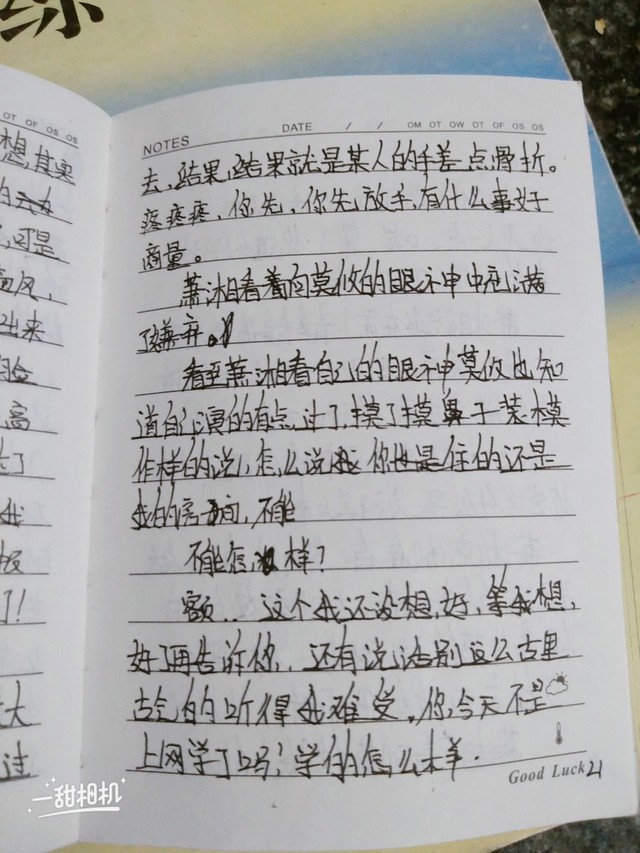 练
想,其实
OT OF OS OS
可是
风,
出来
脸
高
了
我
报
了!
大
过
NOTES
DATE / / OM OT OW OT OF OS OS
去,结果,结果就是某人的手差点骨折。
疼疼疼,你先,你先放手,有什么事好
商量。
萧湘看着肉莫攸的眼神中充满
了嫌弃。
看到萧湘看自己的眼神莫攸也知
道自己演的有点过了,摸了摸鼻子装模
作样的说,怎么说我你也是住的还是
我的房间,不能
不能怎样?
额.. 这个我还没想,好,等我想,
好了再告诉你,还有说话别这么古里
古气的听得我难受。你,今天不是
上网学了吗!学的怎么样.
Good Luck 21
一甜相机